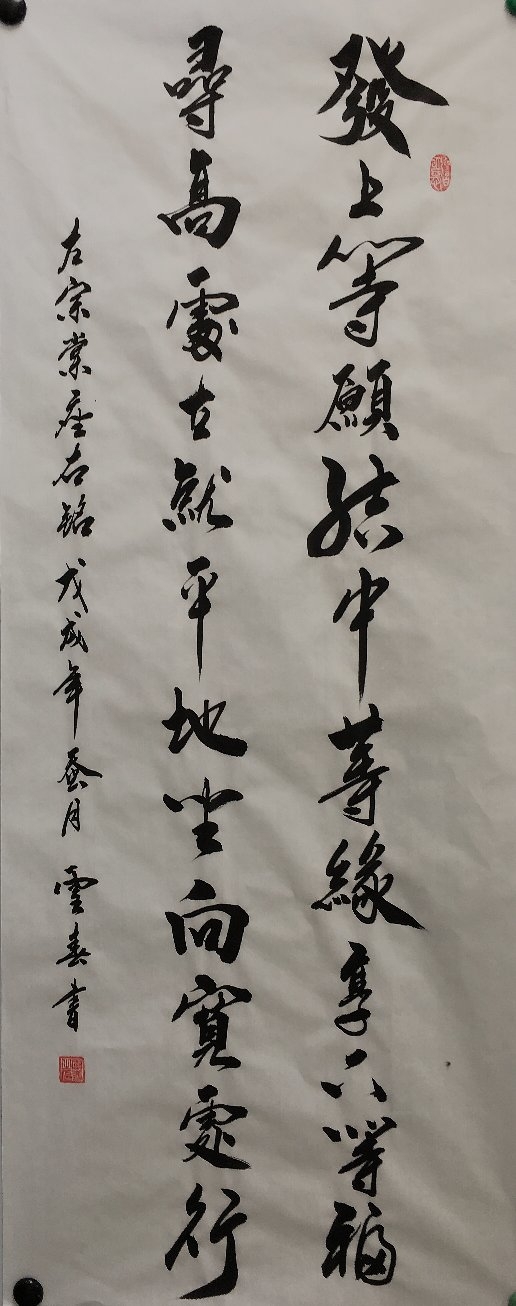 發上等願結中等緣享下等福
尋高處立就平地坐向寬處行
左宗棠座右銘 戊戌年蚕月 雲春書